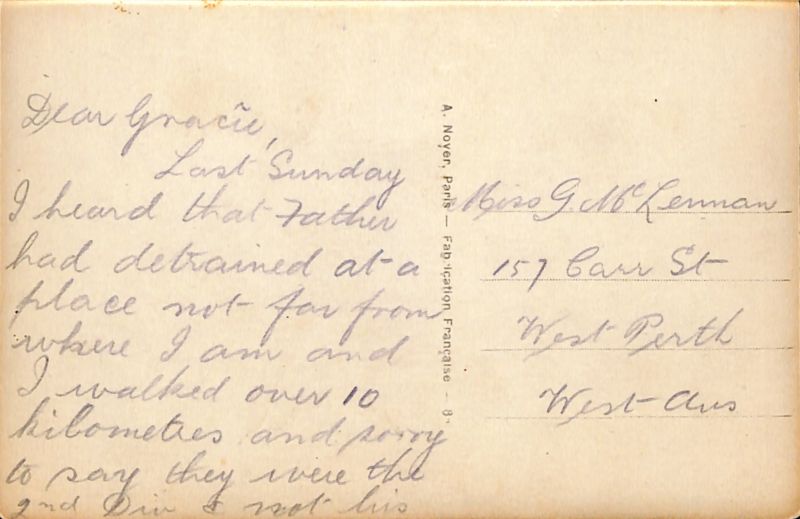 Dear Gracie,
Last Sunday
I heard that Father
had detrained at a
place not far from
where I am and
I walked over 10
kilometres and sorry
to say they were the
2nd Div & not his
A. Noyer, Paris — Fabrication Française - 8
Miss G. McLennan
157 Carr St
West Perth
West Aus